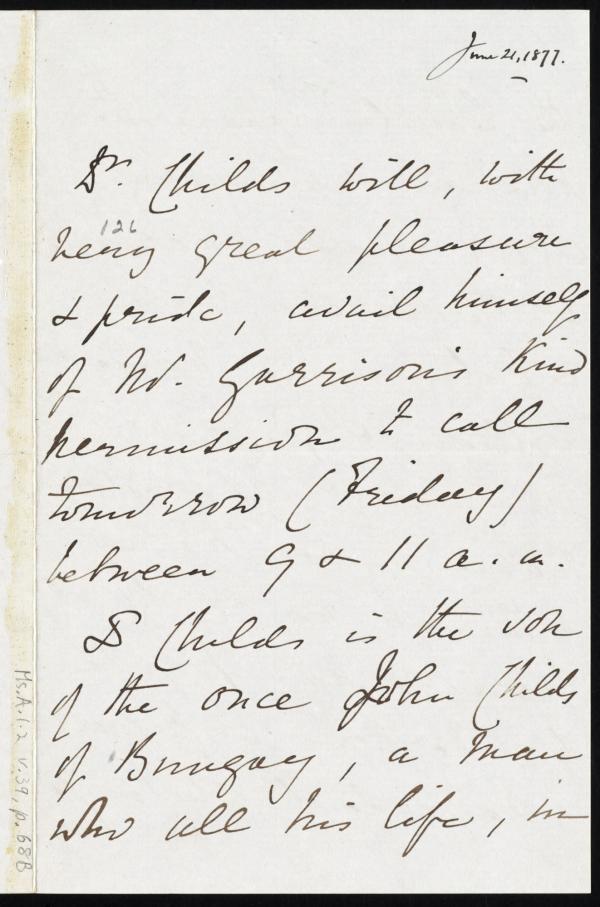 June 21, 1877.
Dr. Childs will, with
126
very great pleasure
& pride, avail himself
of Mr. Garrison's kind
permission to call
tomorrow (Friday)
between 9 & 11 a.m.
Dr Childs is the son
of the once John Childs
of Bungay, a man
who all his life, in
Ms.A.1.2 v.39, p.68B